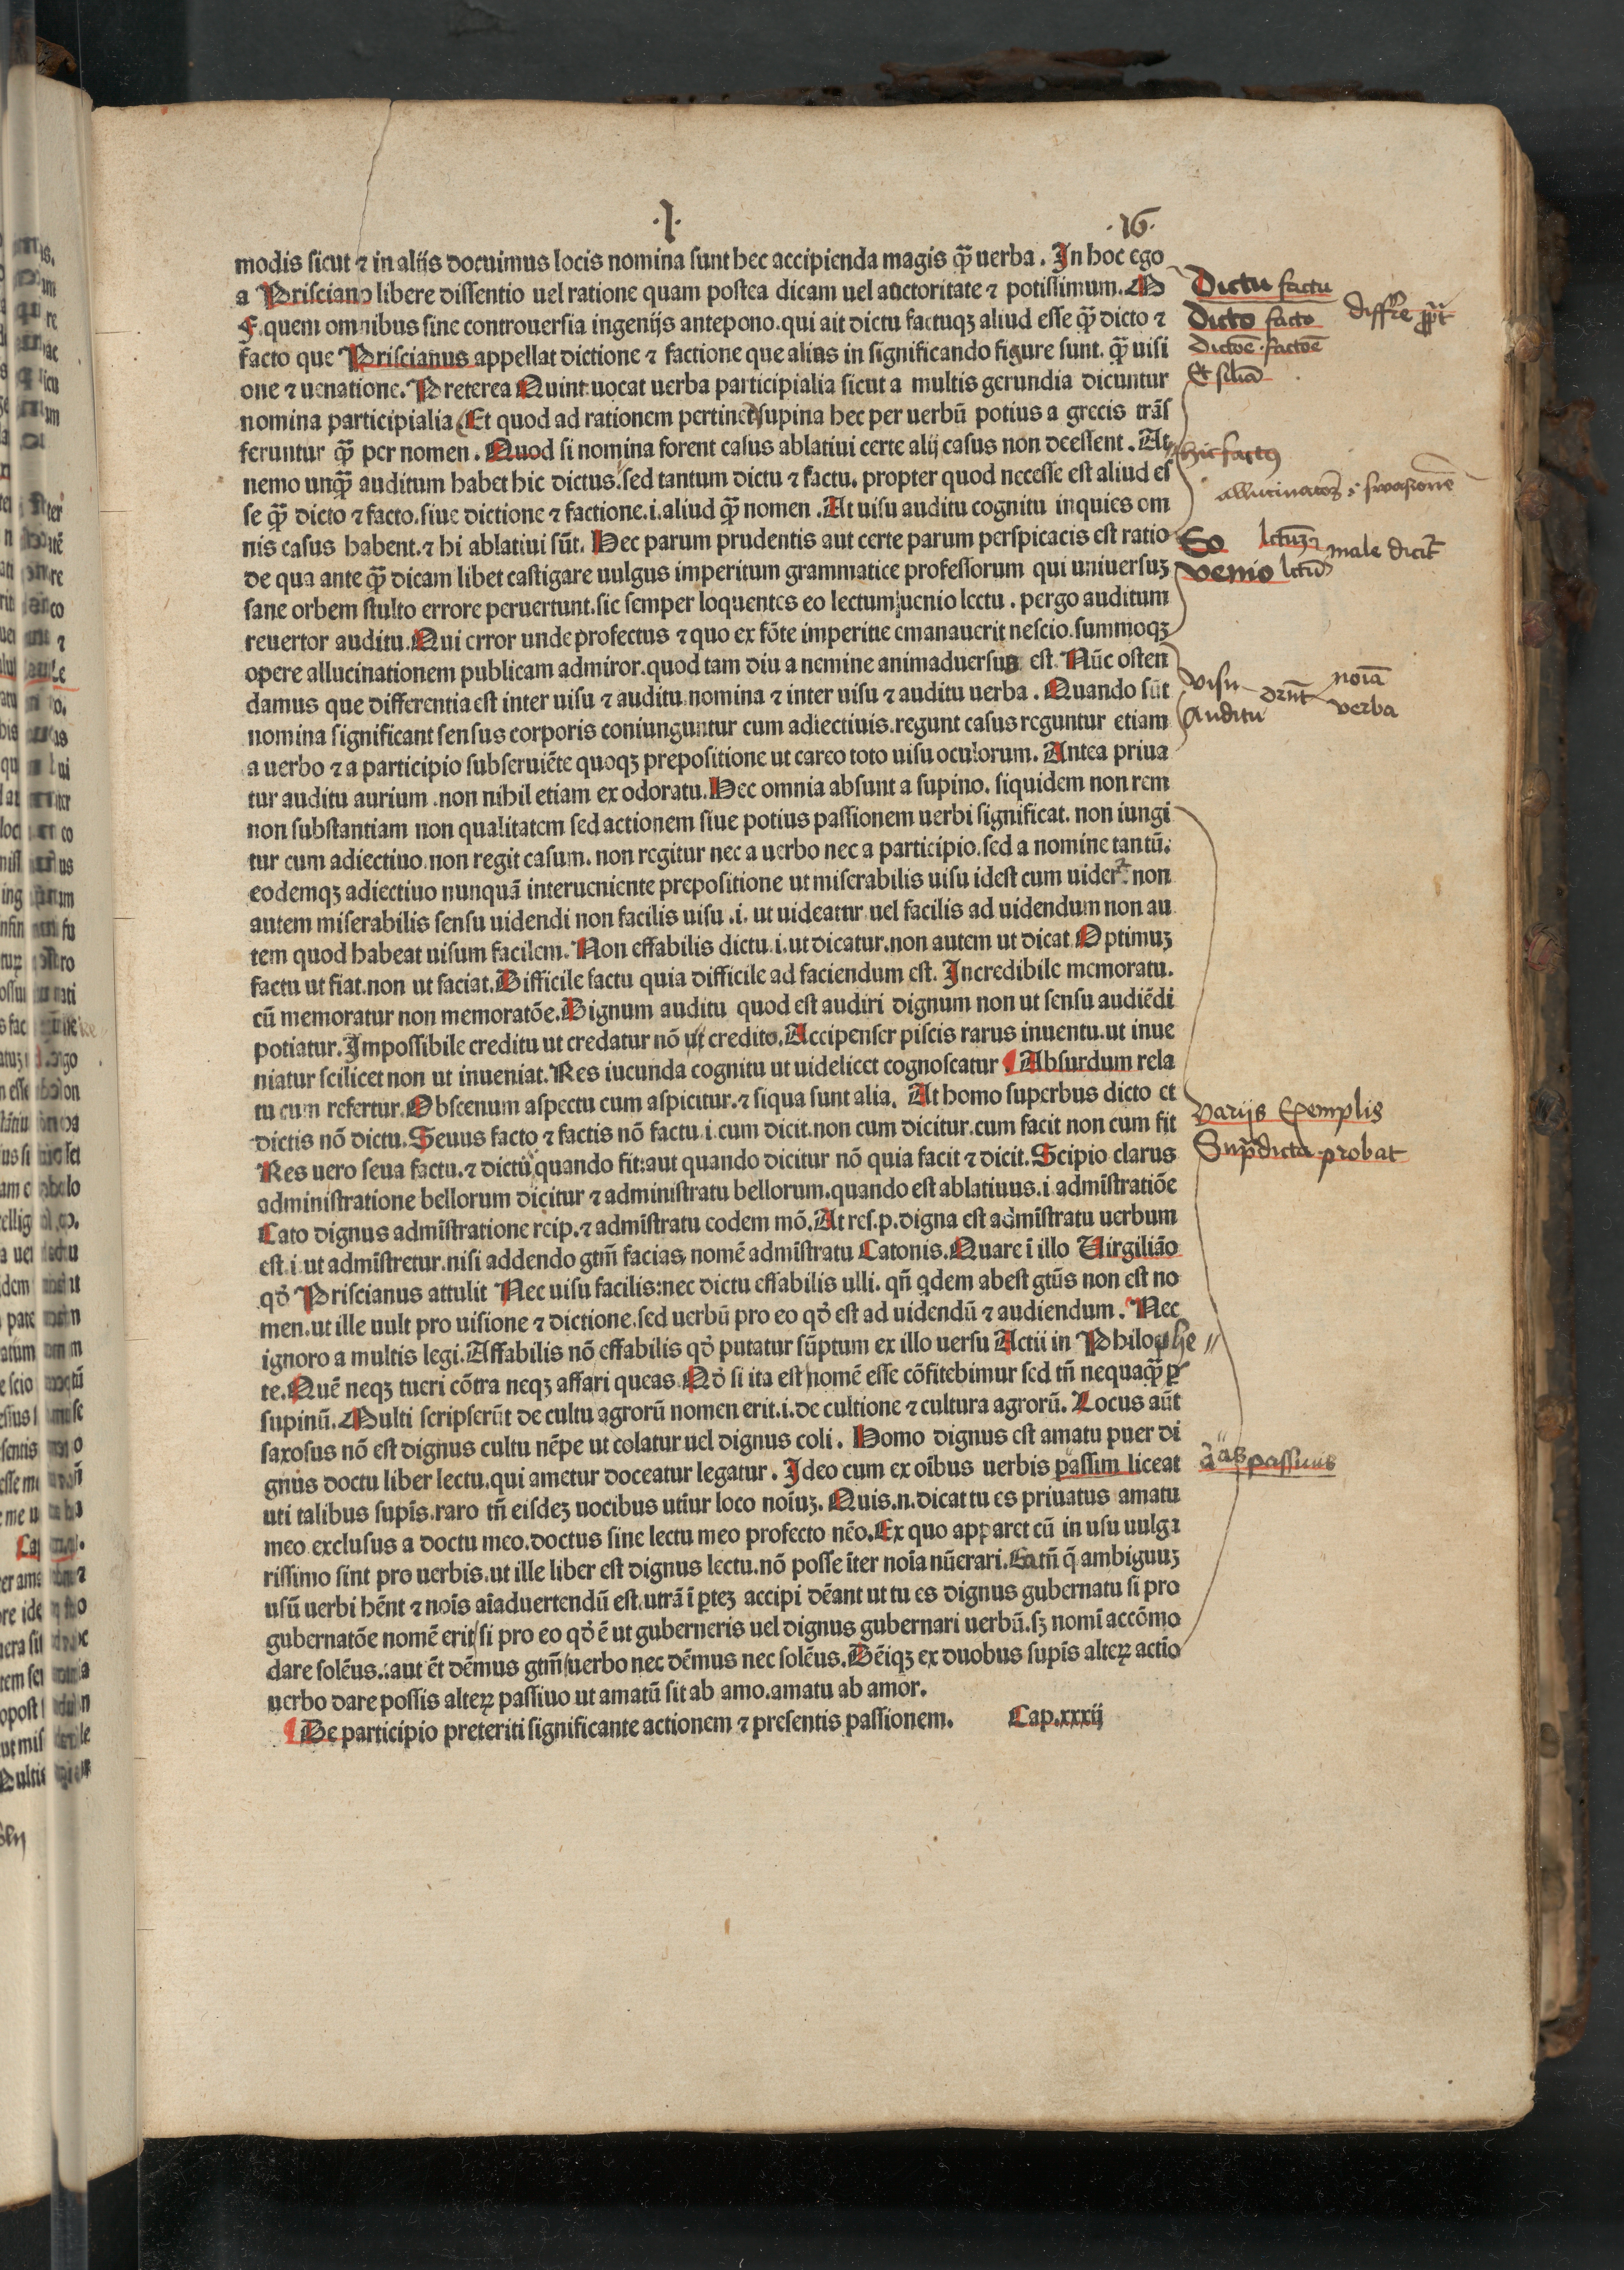 .I.
.16.
modis sicut ⁊ in alijs docuimus locis nomina sunt hec accipienda magis q̃ uerba. In hoc ego
a Prisciano libere dissentio uel ratione quam postea dicam uel auctoritate ⁊ potissimum. M
F. quem omnibus sine controuersia ingenijs antepono. qui ait dictu factuqꝫ aliud esse q̃ dicto ⁊
facto que Priscianus appellat dictione ⁊ factione que alius in significando figure sunt. q̃ uisi
one ⁊ uenatione. Preterea Quint. uocat uerba participialia sicut a multis gerundia dicuntur
nomina participialia (Et quod ad rationem pertinet) supina hec per uerbũ potius a grecis trãſ
feruntur q̃ per nomen. Quod si nomina forent casus ablatiui certe alij casus non deessent. At
nemo unq̃ auditum habet hic dictus. sed tantum dictu ⁊ factu. propter quod necesse est aliud eſ
se q̃ dicto ⁊ facto. siue dictione ⁊ factione. i. aliud q̃ nomen. At uisu auditu cognitu inquies om
nis casus habent. ⁊ hi ablatiui sũt. Hec parum prudentis aut certe parum perspicacis est ratio
de qua ante q̃ dicam libet castigare uulgus imperitum grammatice professorum qui uniuersuꝫ
sane orbem stulto errore peruertunt. sic semper loquentes eo lectum uenio lectu. pergo auditum
reuertor auditu. Qui error unde profectus ⁊ quo ex fõte imperitie emanauerit nescio. summoqꝫ
opere allucinationem publicam admiror. quod tam diu a nemine animaduersus est. Nũc osten
damus que differentia est inter uisu ⁊ auditu nomina ⁊ inter uisu ⁊ auditu uerba. Quando sũt
nomina significant sensus corporis coniunguntur cum adiectiuis. regunt casus reguntur etiam
a uerbo ⁊ a participio subseruiẽte quoqꝫ prepositione ut careo toto uisu oculorum. Antea priua
tur auditu aurium. non nihil etiam ex odoratu. Hec omnia absunt a supino. siquidem non rem
non substantiam non qualitatem sed actionem siue potius passionem uerbi significat. non iungi
tur cum adiectiuo. non regit casum. non regitur nec a uerbo nec a participio. sed a nomine tantũ.
eodemqꝫ adiectiuo nunquã interueniente prepositione ut miserabilis uisu idest cum uideť. non
autem miserabilis sensu uidendi non facilis uisu .i. ut uideatur uel facilis ad uidendum non au
tem quod habeat uisum facilem. Non effabilis dictu. i. ut dicatur. non autem ut dicat Optimuꝫ
factu ut fiat. non ut faciat. Difficile factu quia difficile ad faciendum est. Incredibile memoratu.
cũ memoratur non memoratõe. Dignum auditu quod est audiri dignum non ut sensu audiẽdi
potiatur. Impossibile creditu ut credatur nõ ut credito. Accipenser piscis rarus inuentu. ut inue
niatur scilicet non ut inueniat. Res iucunda cognitu ut uidelicet cognoscatur ¶ Absurdum rela
tu cum refertur. Obscenum aspectu cum aspicitur. ⁊ siqua sunt alia. At homo superbus dicto et
dictis nõ dictu. Seuus facto ⁊ factis nõ factu. i. cum dicit. non cum dicitur. cum facit non cum fit
Res uero seua factu. ⁊ dictu quando fit: aut quando dicitur nõ quia facit ⁊ dicit. Scipio clarus
administratione bellorum dicitur ⁊ administratu bellorum. quando est ablatiuus. i. admĩstratiõe
Cato dignus admĩstratione reip. ⁊ admĩstratu eodem mõ. At res. p. digna est admĩstratu uerbum
est. i. ut admĩstretur. nisi addendo gtm̃ facias nomẽ admĩstratu Catonis. Quare ĩ illo Uirgilião
qđ Priscianus attulit Nec uisu facilis: nec dictu effabilis ulli. qñ qdem abest gtũs non est no
men. ut ille uult pro uisione ⁊ dictione. sed uerbũ pro eo qđ est ad uidendũ ⁊ audiendum. Nec
ignoro a multis legi. Affabilis nõ effabilis qđ putatur sũptum ex illo uersu Actii in Philocthe
te. Quẽ neqꝫ tueri cõtra neqꝫ affari queas. Qđ si ita est nomẽ esse cõfitebimur sed tñ nequaq̃ ꝑ
supinũ. Multi scripserũt de cultu agrorũ nomen erit. i. de cultione ⁊ cultura agrorũ. Locus aũt
saxosus nõ est dignus cultu nẽpe ut colatur uel dignus coli. Homo dignus est amatu puer di
gnus doctu liber lectu. qui ametur doceatur legatur. Ideo cum ex oĩbus uerbis passim liceat
uti talibus supĩs. raro tñ eisdeꝫ uocibus utĩur loco noĩuꝫ. Quis. n. dicat tu es priuatus amatu
meo exclusus a doctu meo. doctus sine lectu meo profecto nẽo. Ex quo apparet cũ in usu uulga
rissimo sint pro uerbis. ut ille liber est dignus lectu. nõ posse ĩter noĩa nũerari. Ea tñ q̃ ambiguuꝫ
usũ uerbi hẽnt ⁊ noĩs aĩaduertendũ est. utrã ĩ ꝑteꝫ accipi dẽant ut tu es dignus gubernatu si pro
gubernatõe nomẽ erit/ si pro eo qđ ẽ ut guberneris uel dignus gubernari uerbũ. sꝫ nomĩ accõmo
dare solẽus. aut ẽt dẽmus gtm̃ uerbo nec dẽmus nec solẽus. Dẽiqꝫ ex duobus supĩs alteꝝ actĩo
uerbo dare possis alteꝝ passiuo ut amatũ sit ab amo. amatu ab amor.
¶ De participio preteriti significante actionem ⁊ presentis passionem. Cap. xxxij
Dictu factu
Dicto facto differre
dictoẽ. factoẽ
Et silia
hic factus
Eo lectuꝫ male dicit̃
venio lectũ
visu noĩa
Auditu verba
varijs Exemplis
Sup̃dicta probat
passiuis